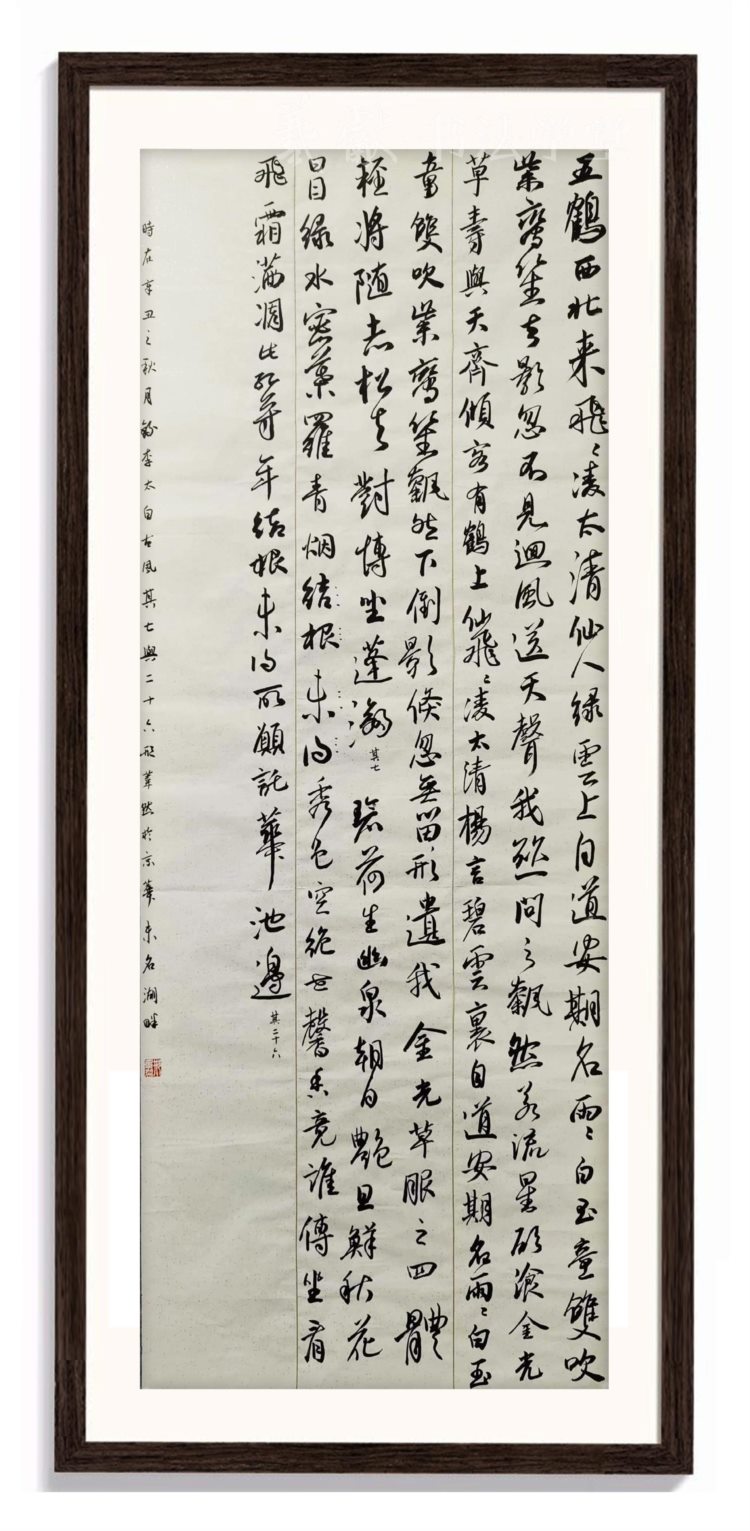 五鶴西北来飛〻凌太清仙人绿雲上自道安期名兩〻白玉童雙吹
紫鸞笙去影忽不見迴風送天聲我欲問之飄然若流星願飡金光
草壽與天齊傾客有鶴上仙飛〻凌太清楊言碧雲裏自道安期名兩〻白玉
童雙吹紫鸞笙飄然下倒影倏忽無留形遺我金光草服之四體
輕將隨赤松去對博坐蓬瀛 其七 碧荷生幽泉朝日艷且鮮秋花
冒绿水密葉羅青烟結根未得秀色空絕世馨香竟誰傳坐看
飛霜滿凋此紅芳年結根未得所願託華池邊 其二十六
時在辛丑之秋月錄李太白古風其七與二十六 然於京華未名湖畔